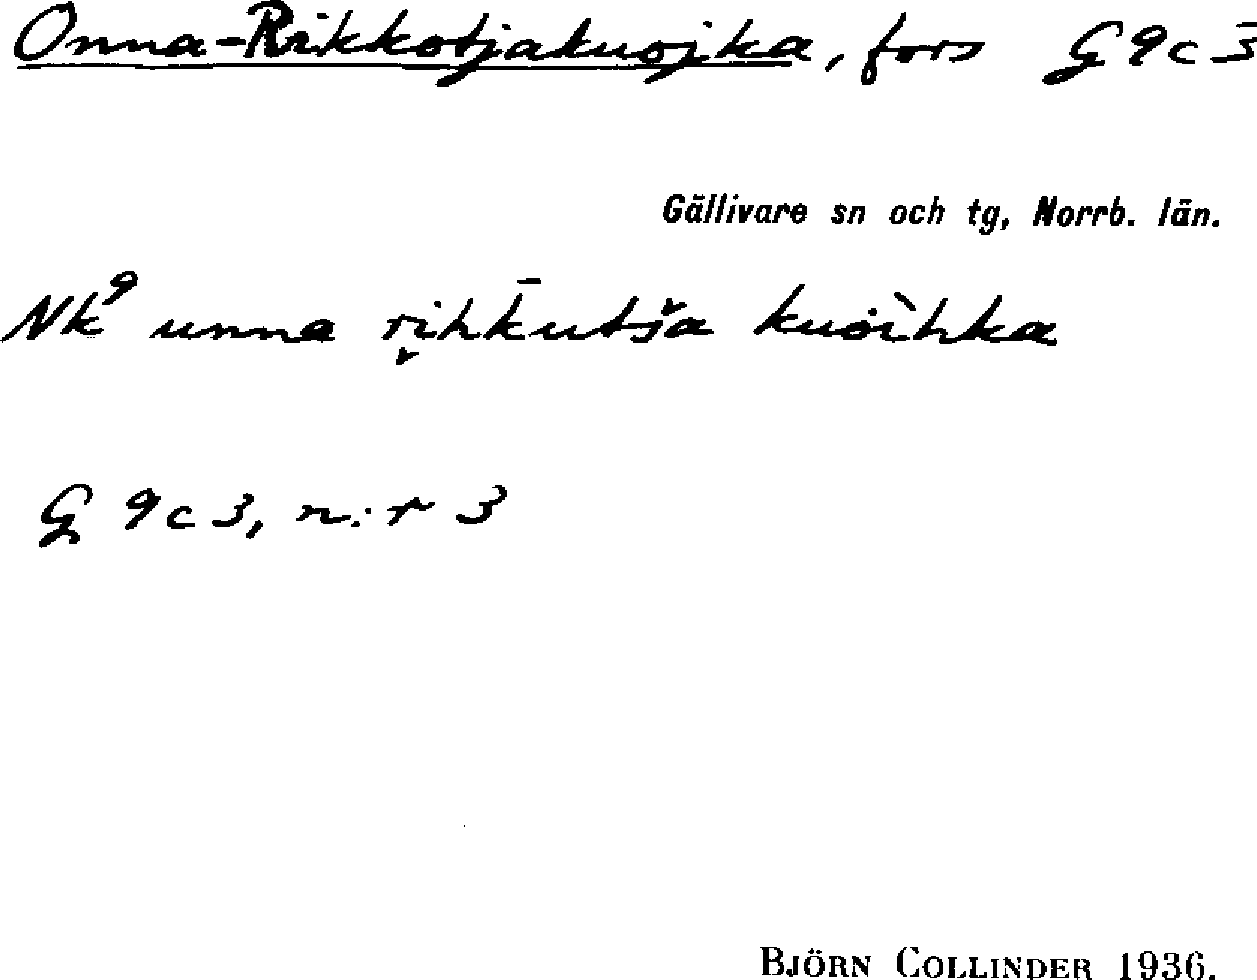 Onna-Rikkotjakuojka, fors G 9 c 3
Gällivare sn och tg, Norrb. län.
Nk⁹ unna ri̬hk̄utša kuȯìhka
G 9 c 3, n:r 3
BJÖRN COLLINDER 1936.